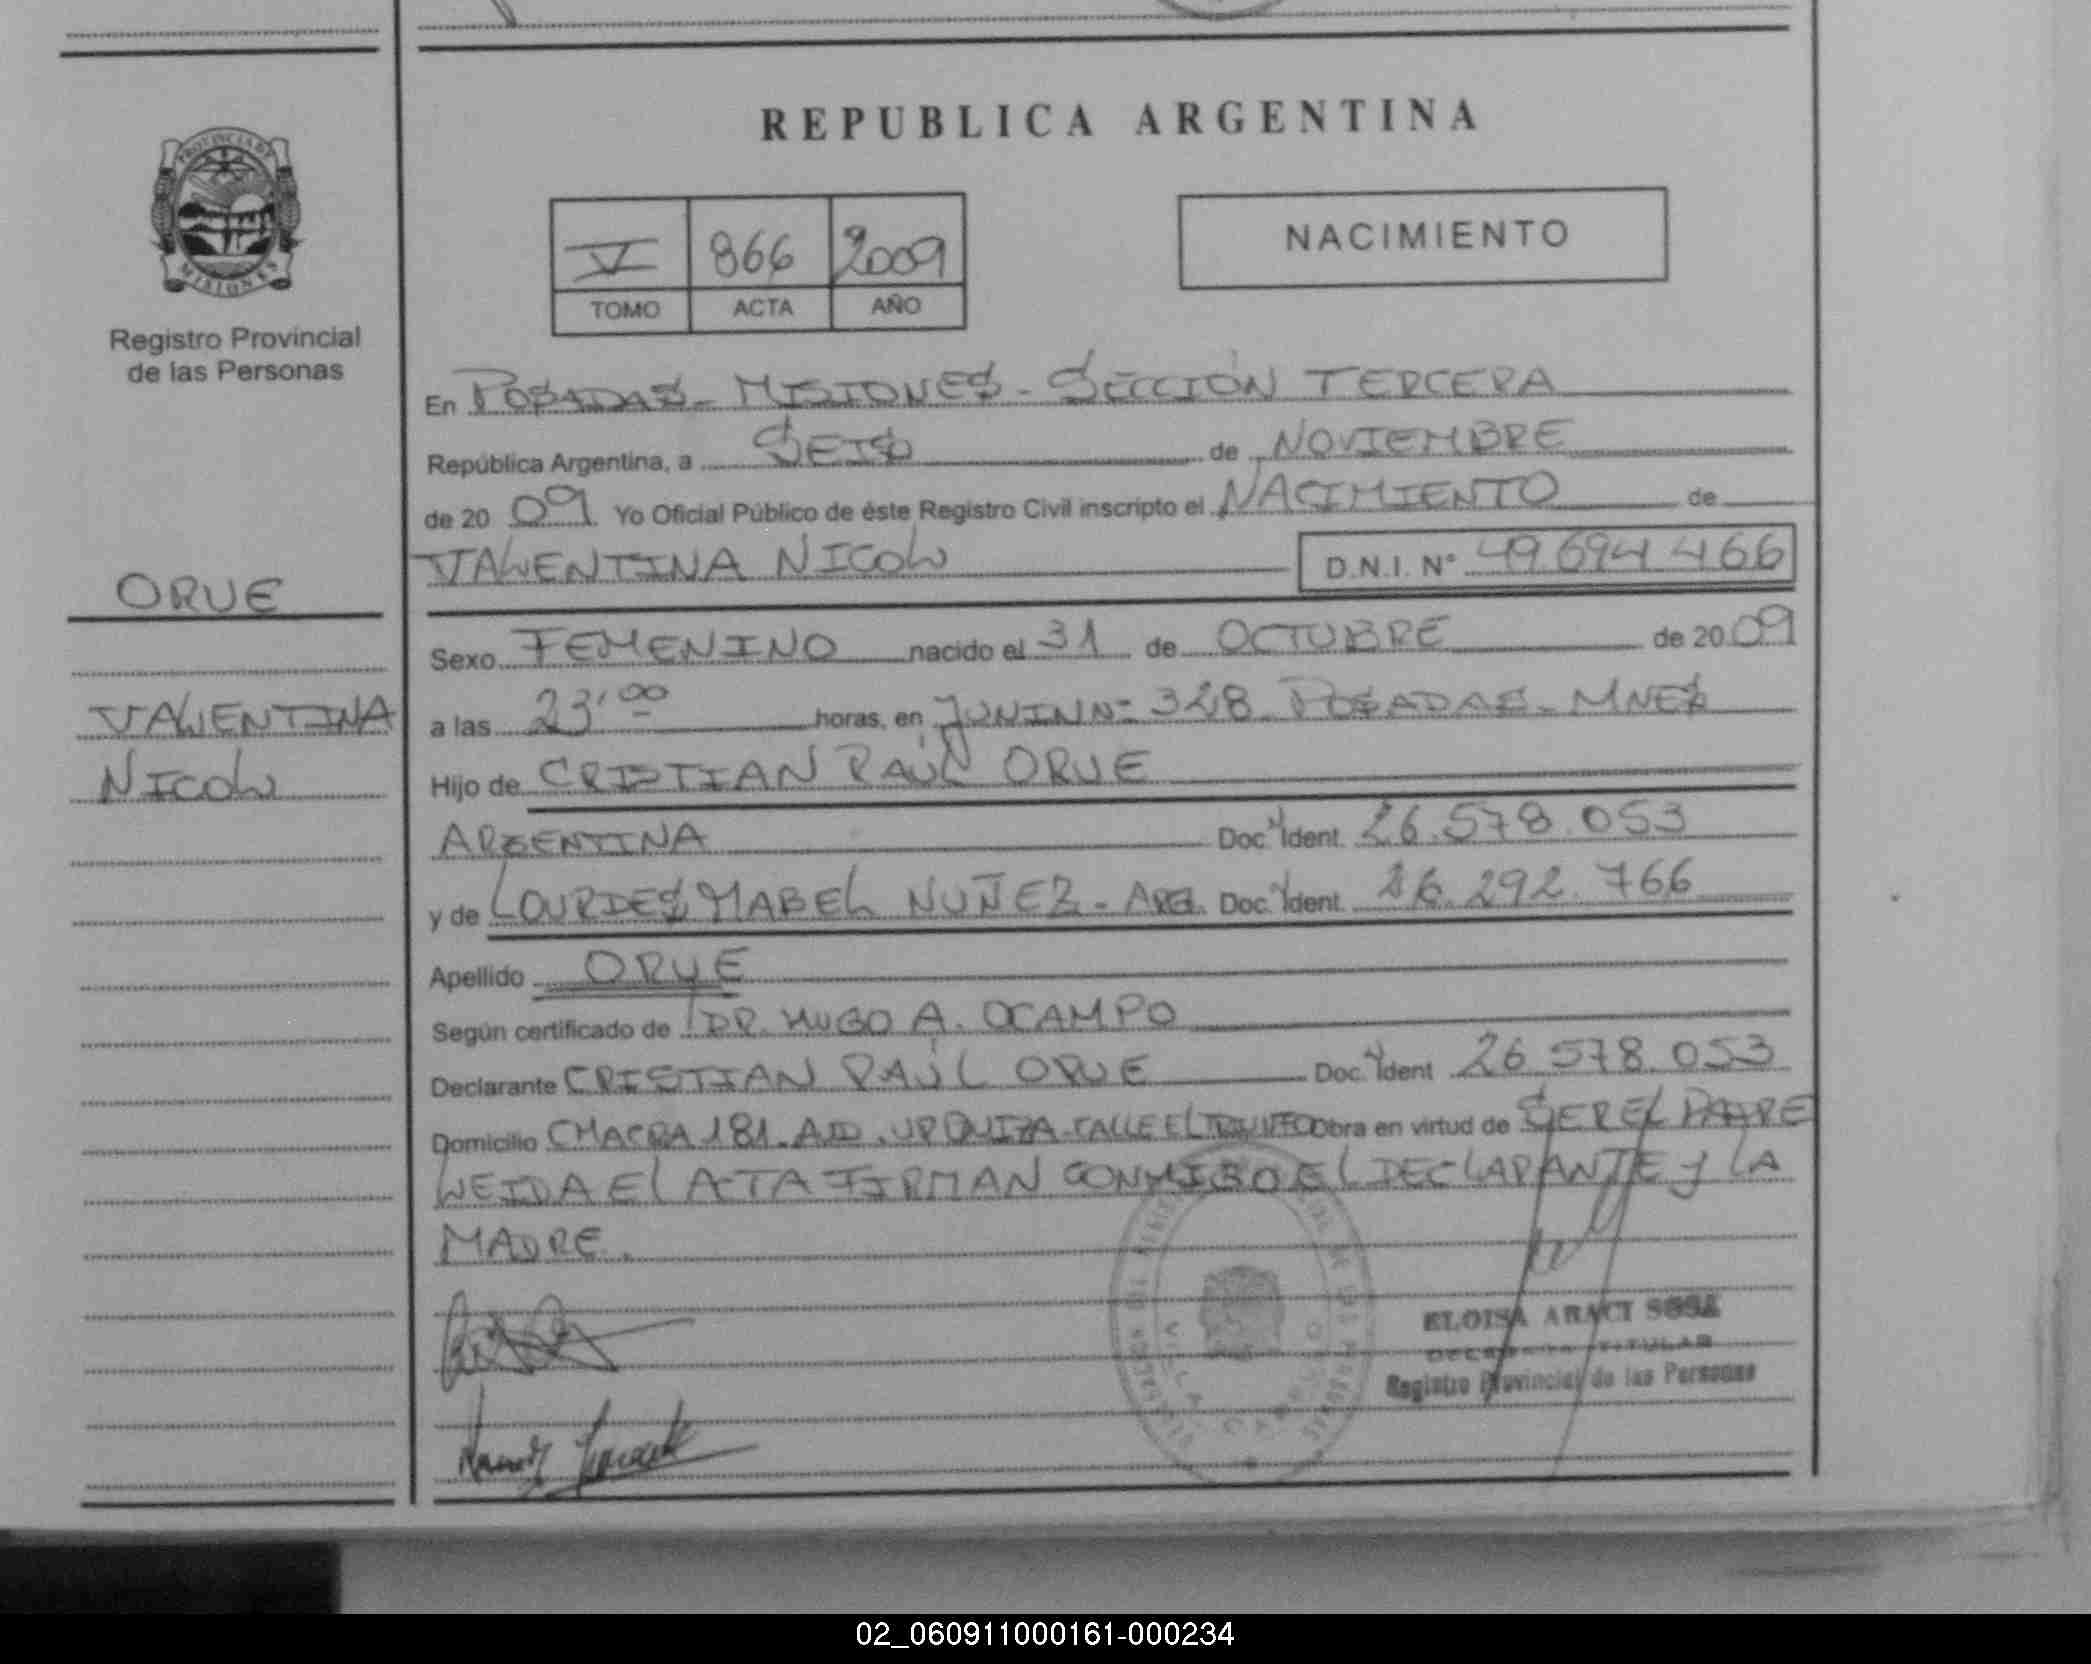 PROVINCIA DE
MISIONES
Registro Provincial
de las Personas
ORUE
VALENTINA
NICOL
REPUBLICA ARGENTINA
V 866 2009
TOMO ACTA AÑO
NACIMIENTO
En POSADAS - MISIONES - SECCIÓN TERCERA
República Argentina, a SEIS de NOVIEMBRE
de 20 09 Yo Oficial Público de éste Registro Civil inscripto el NACIMIENTO de
VALENTINA NICOL D.N.I. N° 49.694.466
Sexo FEMENINO nacido el 31 de OCTUBRE de 20 09
a las 23,00 horas, en JUNIN N= 328 POSADAS - MNES
Hijo de CRISTIAN RAÚL ORUE
ARGENTINA Doc Ident. 26.578.053
y de LOURDES MABEL NUÑEZ - ARG. Doc. Ident. 26.292.766
Apellido ORUE
Según certificado de DR. HUGO A. OCAMPO
Declarante CRISTIAN RAÚL ORUE Doc. Ident 26.578.053
Domicilio CHACRA 181. AD. URQUIZA - CALLE EL Obra en virtud de SER EL PADRE
LEIDA EL ATA FIRMAN CONMIGO EL DECLARANTE Y LA
MADRE.
ELOISA ARACI SOSA
TITULAR
Registro Provincial de las Personas
02_060911000161-000234